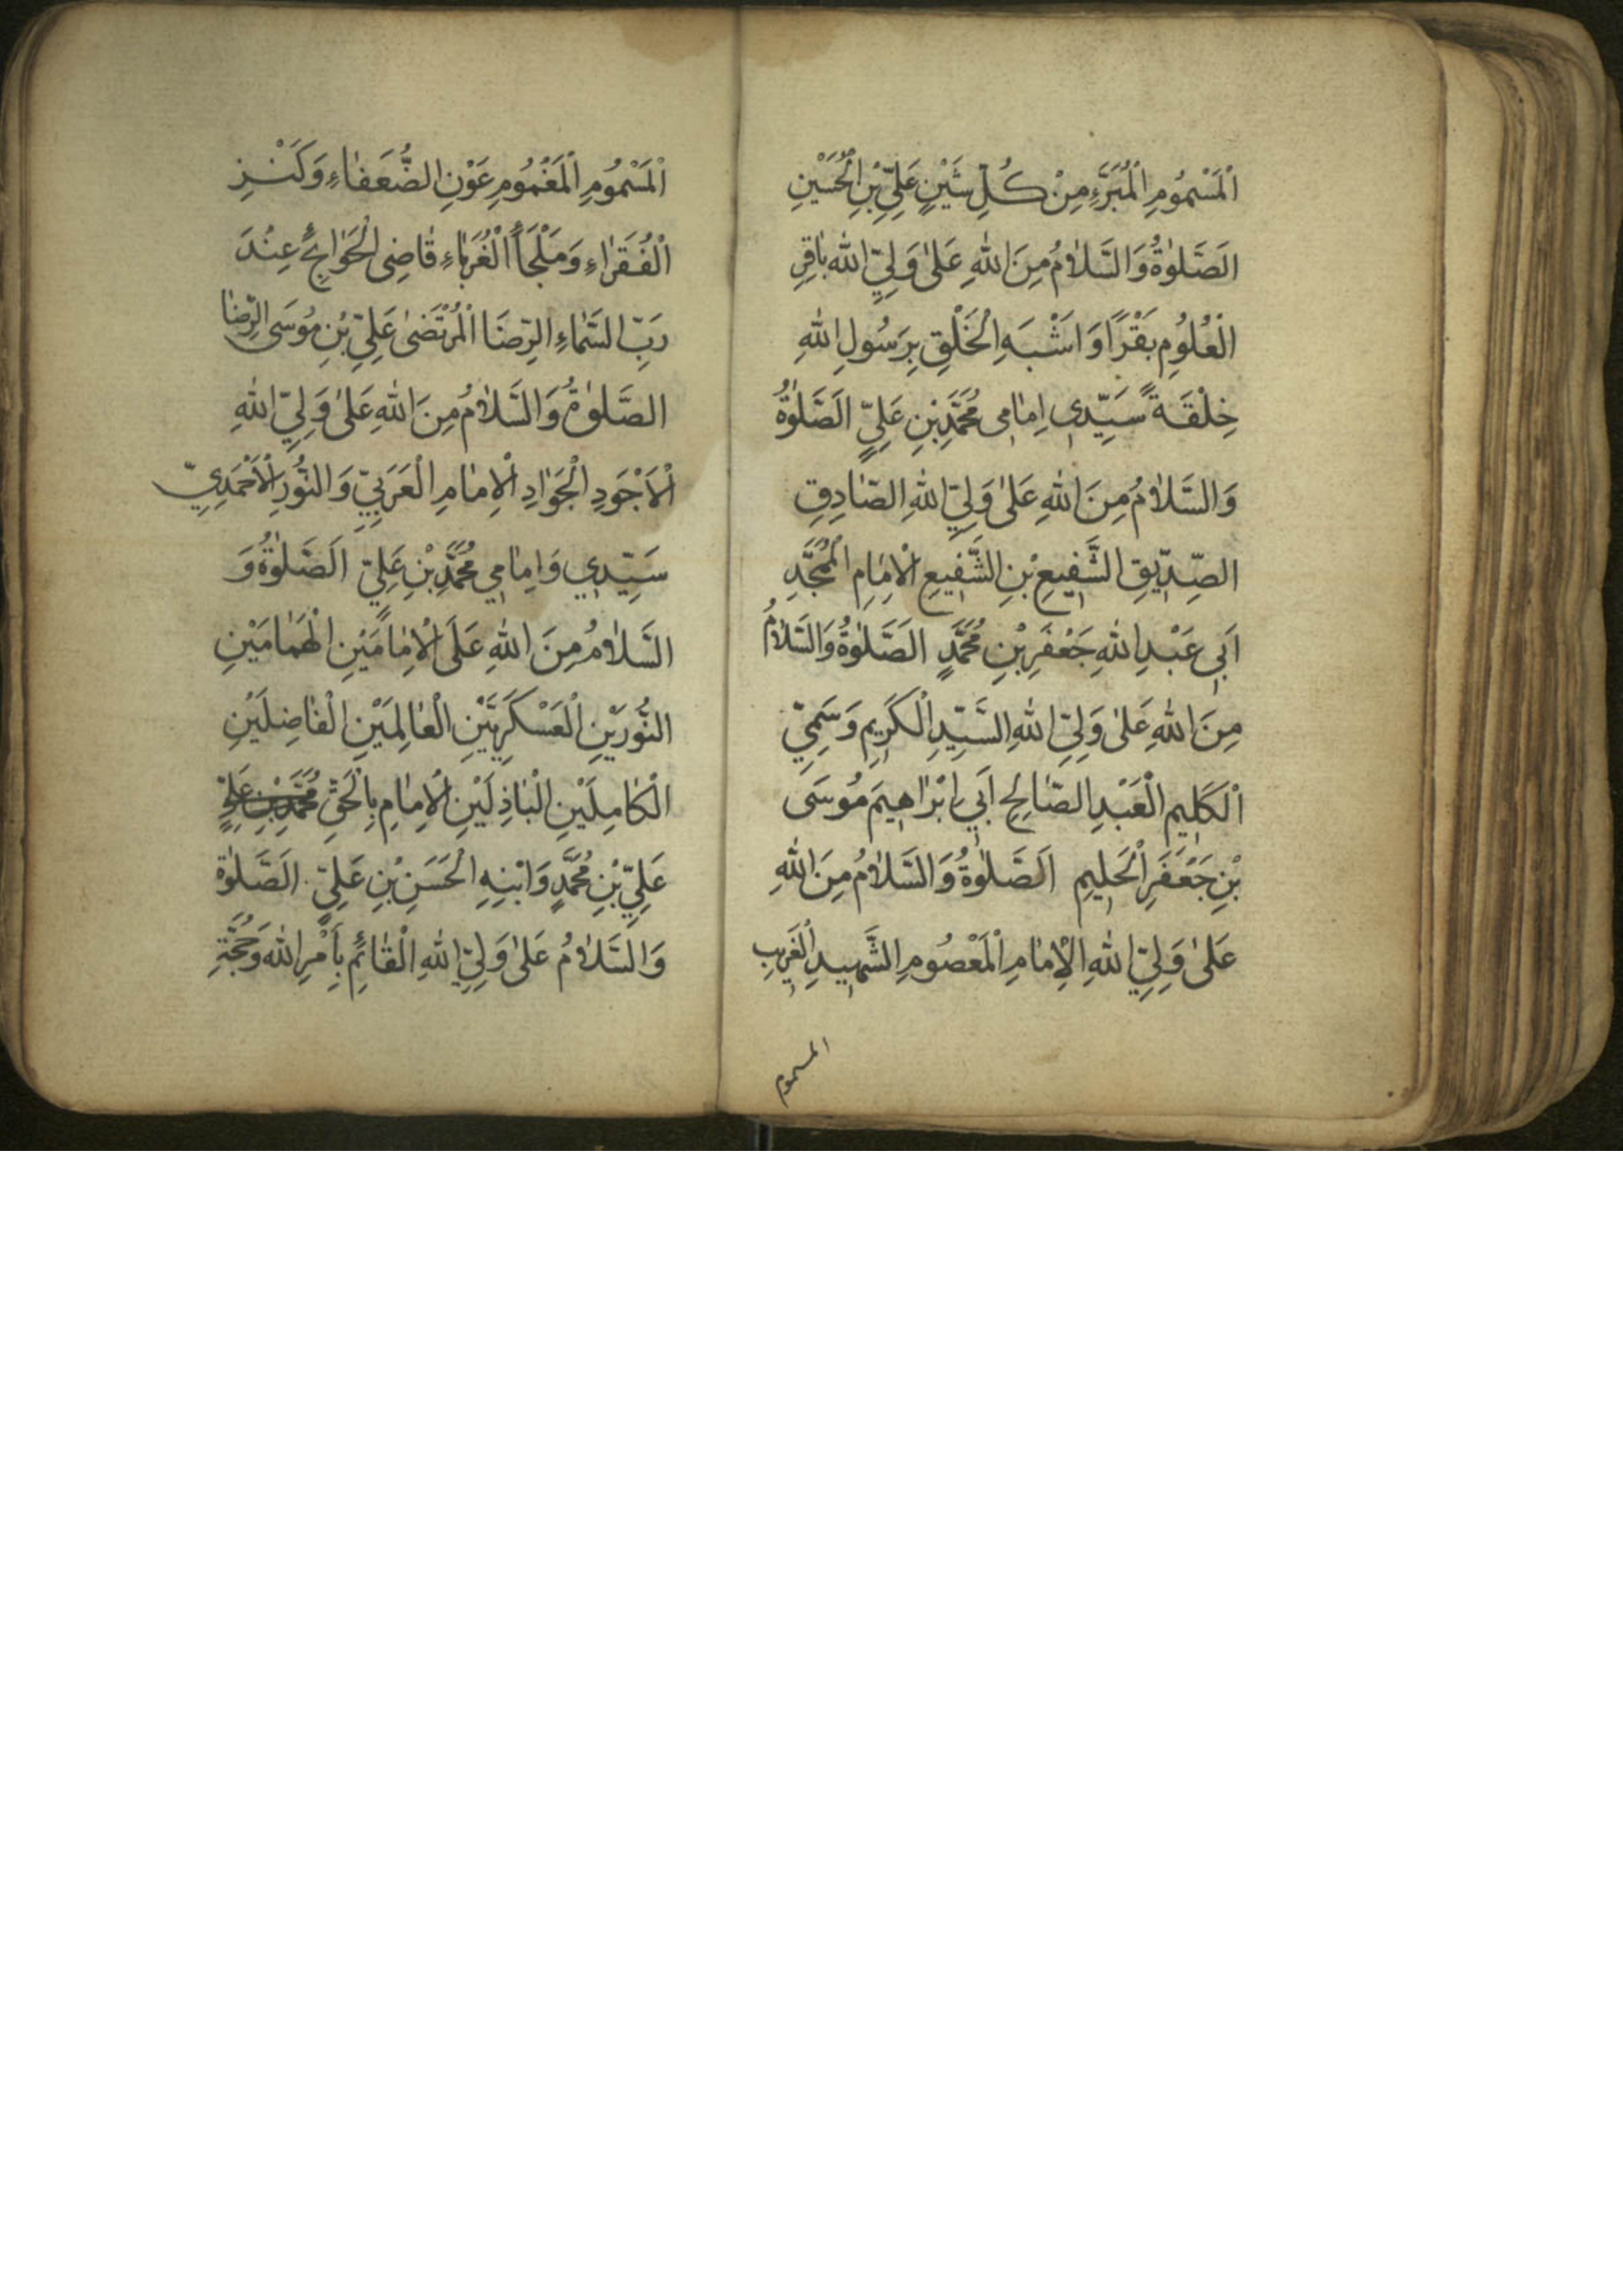 اَلْمَسْمُومِ الْمُبَرَّءِ مِنْ كُلِّ شَيْنٍ عَلِيِّ بْنِ الْحُسَيْنِ
اَلصَّلوٰةُ وَالسَّلاٰمُ مِنَ اللهِ عَلىٰ وَلِيِّ اللهِ بٰاقِرِ
الْعُلُومِ بَقْرًا وَ اَشْبَهِ الْخَلْقِ بِرَسُولِ اللهِ
خِلْقَةً سَيِّدِي اِمٰامِي مُحَمَّدِ بْنِ عَلِيٍّ اَلصَّلوٰةُ
وَالسَّلاٰمُ مِنَ اللهِ عَلىٰ وَلِيِّ اللهِ الصّٰادِقِ
الصِّدِّيقِ الشَّفِيعِ بْنِ الشَّفِيعِ الْاِمٰامِ الْمُمَجَّدِ
اَبِي عَبْدِ اللهِ جَعْفَرِ بْنِ مُحَمَّدٍ اَلصَّلوٰةُ وَالسَّلاٰمُ
مِنَ اللهِ عَلىٰ وَلِيِّ اللهِ السَّيِّدِ الْكَرِيمِ وَسَمِيِّ
الْكَلِيمِ الْعَبْدِ الصّٰالِحِ اَبِي اِبْرٰاهِيمَ مُوسَى
بْنِ جَعْفَرِ الْحَلِيمِ اَلصَّلوٰةُ وَالسَّلاٰمُ مِنَ اللهِ
عَلىٰ وَلِيِّ اللهِ الْاِمٰامِ الْمَعْصُومِ الشَّهِيدِ الْغَرِيبِ
المسموم
الْمَسْمُومِ الْمَغْمُومِ عَوْنِ الضُّعَفٰاءِ وَكَنْزِ
الْفُقَرٰاءِ وَمَلْجَأِ الْغُرَبٰاءِ قٰاضِى الْحَوٰائِجِ عِنْدَ
رَبِّ السَّمٰاءِ الرِّضَا الْمُرْتَضىٰ عَلِيِّ بْنِ مُوسَى الرِّضٰا
الصَّلوٰةُ وَالسَّلاٰمُ مِنَ اللهِ عَلىٰ وَلِيِّ اللهِ
الْاَجْوَدِ الْجَوٰادِ الْاِمٰامِ الْعَرَبِيِّ وَالنُّورِ الْاَحْمَدِيِّ
سَيِّدِي وَاِمٰامِي مُحَمَّدِ بْنِ عَلِيٍّ اَلصَّلوٰةُ وَ
السَّلاٰمُ مِنَ اللهِ عَلَى الْاِمٰامَيْنِ الْهُمٰامَيْنِ
النُّورَيْنِ الْعَسْكَرِيَّيْنِ الْعٰالِمَيْنِ الْفٰاضِلَيْنِ
الْكٰامِلَيْنِ الْبٰاذِلَيْنِ الْاِمٰامِ بِالْحَقِّ مُحَمَّدِ بْنِ عَلِيٍّ
عَلِيِّ بْنِ مُحَمَّدٍ وَابْنِهِ الْحَسَنِ بْنِ عَلِيٍّ اَلصَّلوٰةُ
وَالسَّلاٰمُ عَلىٰ وَلِيِّ اللهِ الْقٰائِمِ بِاَمْرِ اللهِ وَحُجَّةِ